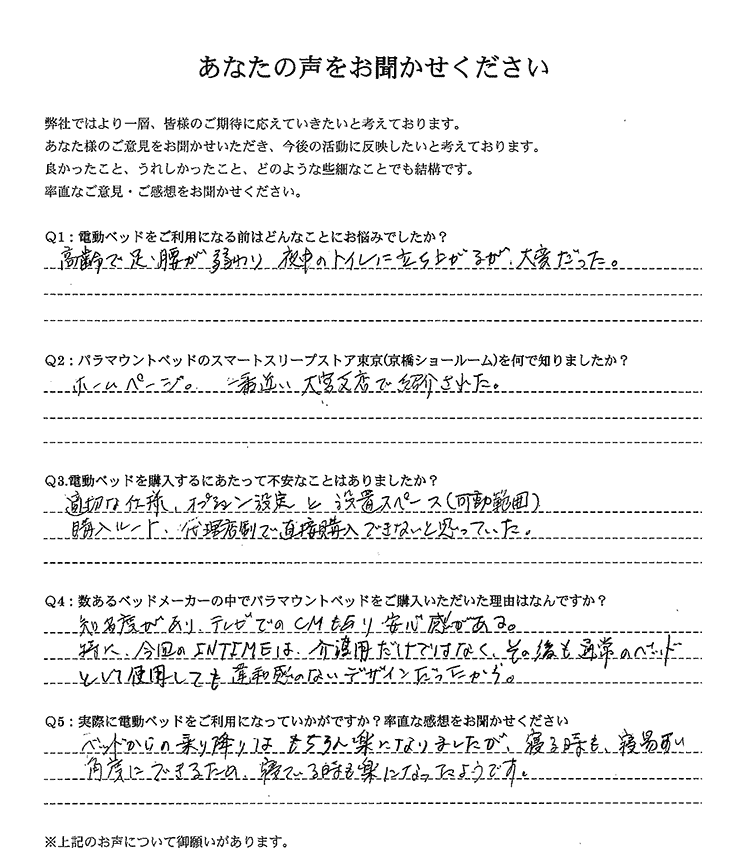 あなたの声をお聞かせください
弊社ではより一層、皆様のご期待に応えていきたいと考えております。
あなた様のご意見をお聞かせいただき、今後の活動に反映したいと考えております。
良かったこと、うれしかったこと、どのような些細なことでも結構です。
率直なご意見・ご感想をお聞かせください。
Q1：電動ベッドをご利用になる前はどんなことにお悩みでしたか？
高齢で足・腰が弱わり 夜中のトイレに立ち上がるが、大変だった。
Q2：パラマウントベッドのスマートスリープストア東京(京橋ショールーム)を何で知りましたか？
ホームページ。 一番近い大宮支店で紹介された。
Q3.電動ベッドを購入するにあたって不安なことはありましたか？
適切な仕様、オプション設定と設置スペース(可動範囲)
購入ルート、代理店制で直接購入できないと思っていた。
Q4：数あるベッドメーカーの中でパラマウントベッドをご購入いただいた理由はなんですか？
知名度があり、テレビでのCMもあり安心感がある。
特に、今回のINTIMEは、介護用だけではなく、その後も通常のベッド
として使用しても違和感のないデザインだったから。
Q5：実際に電動ベッドをご利用になっていかがですか？率直な感想をお聞かせください
ベッドからの乗り降りはもちろん楽になりましたが、寝る時も、寝易い
角度にできるため、寝ている時も楽になったようです。
※上記のお声について御願いがあります。